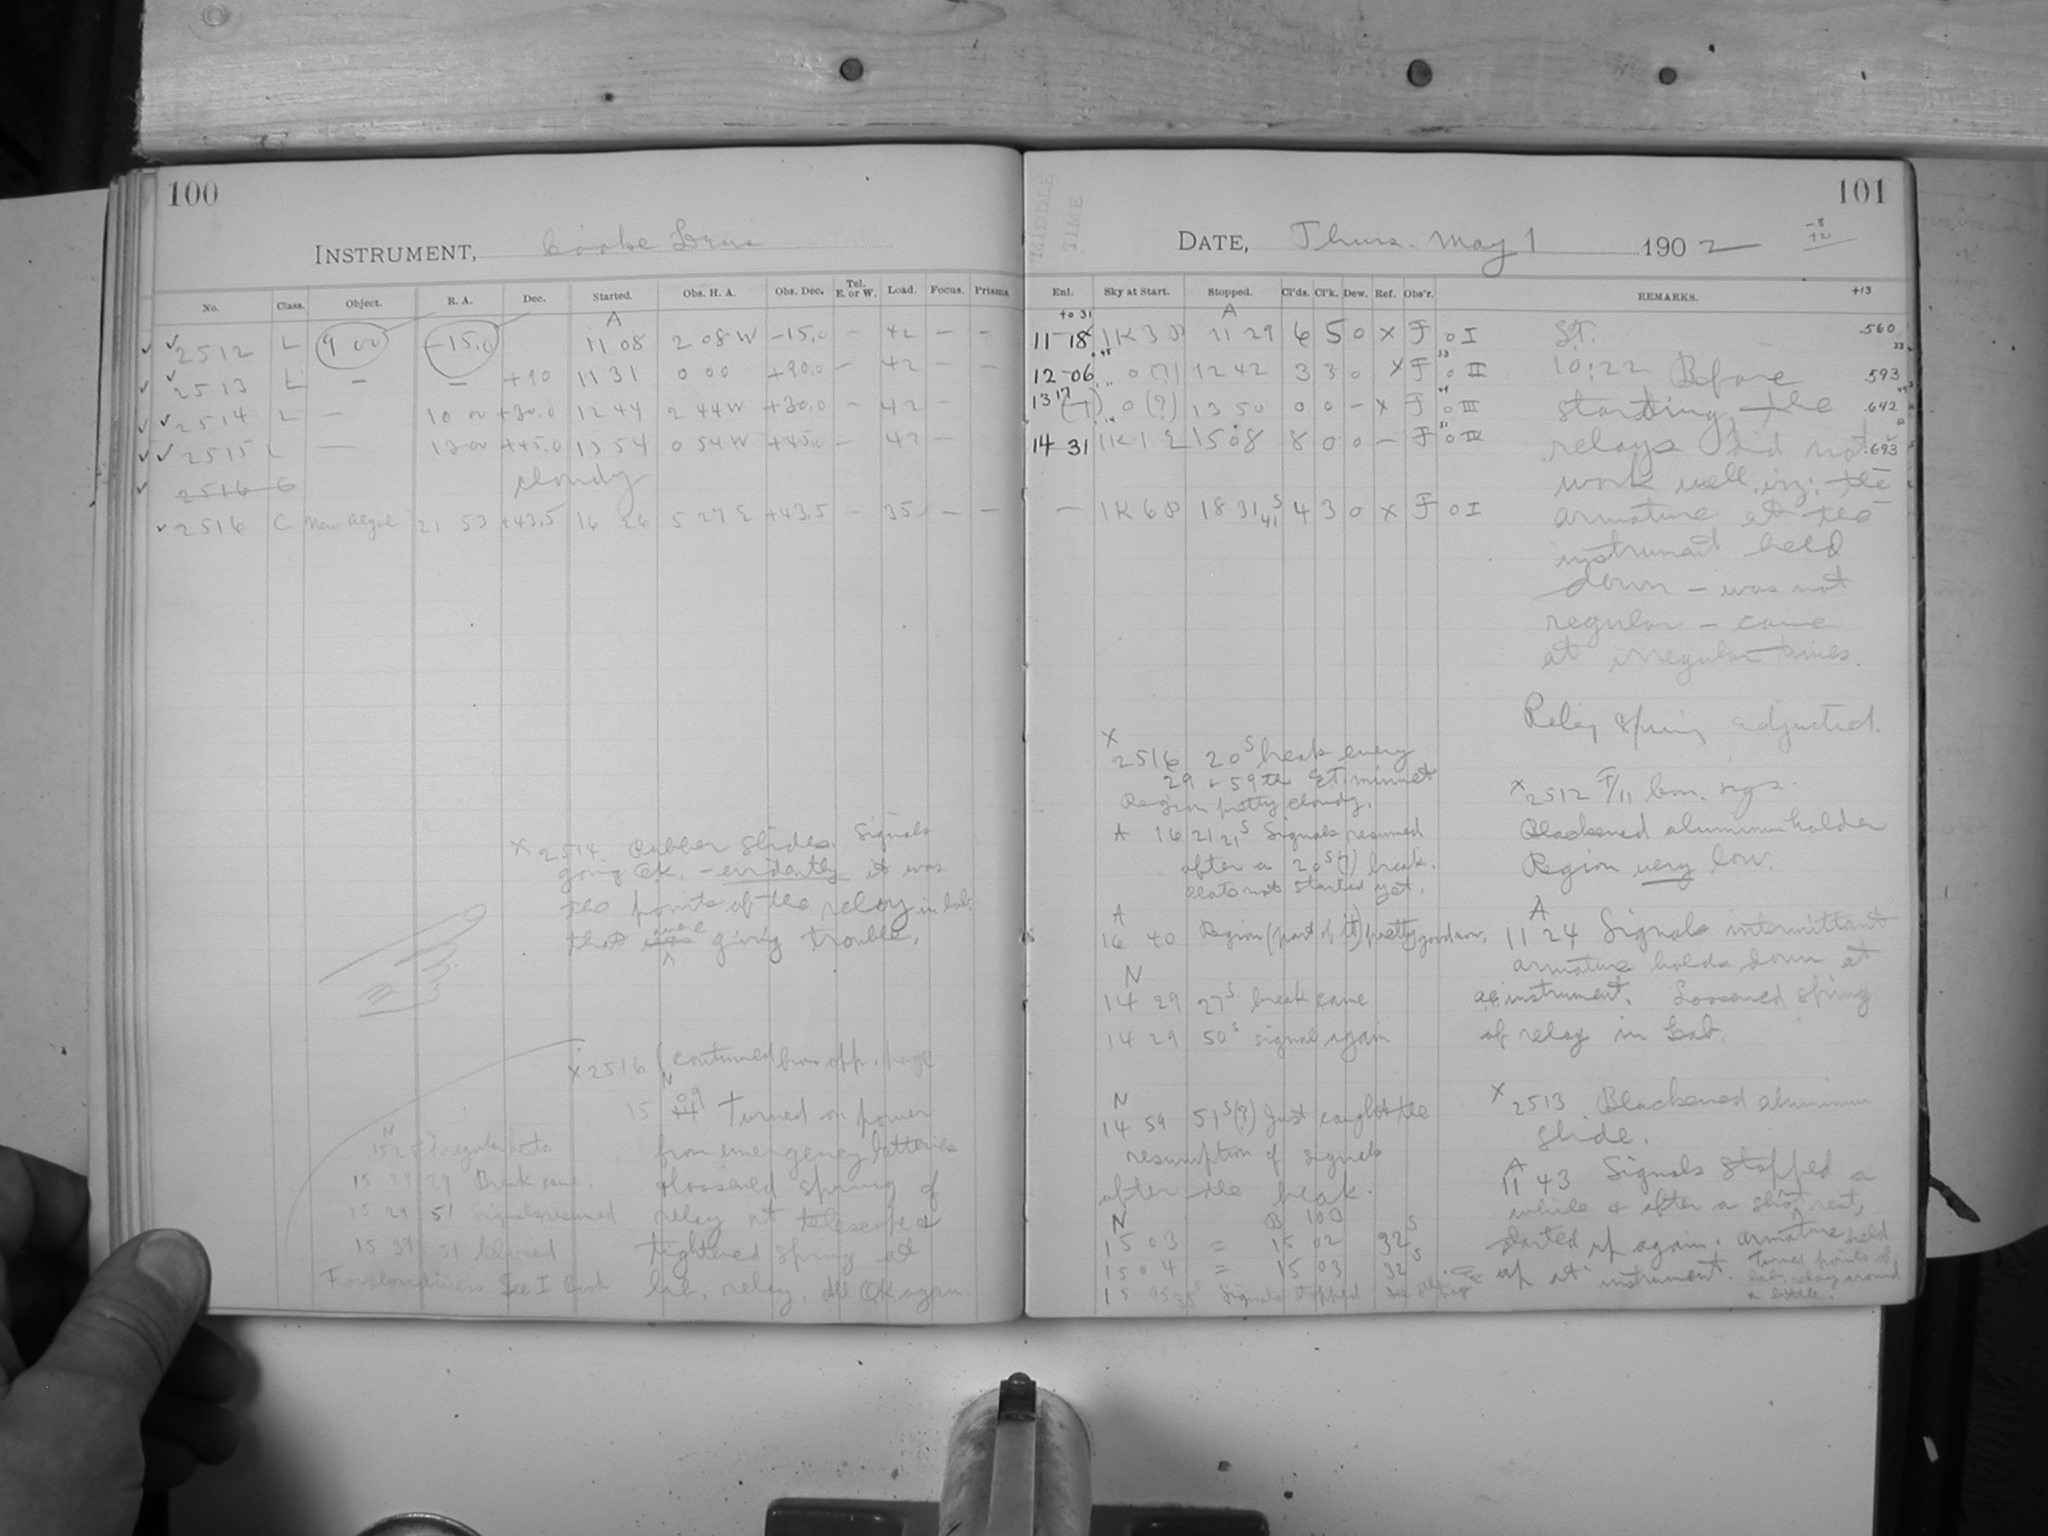 100
INSTRUMENT, Cooke Lens
No. Class. Object. R. A. Dec. Started. Obs. H. A. Obs. Dec. Tel. E. or W. Load. Focus. Prisms.
A
2512 L 9 00 -15.0 11 08 2 08 W -15.0 - 42 - -
2513 L - - +90 11 31 0 00 +90.0 - 42 - -
2514 L - 10 00 +30.0 12 44 2 44 W +30.0 - 42 -
2515 L - 13 00 +45.0 13 54 0 54 W +45.0 - 42 -
2516 C cloudy
2516 C 21 53 +43.5 16 26 5 27 E +43.5 - 35 - -
X 2514. Rubber slides. Signals
going OK. - evidently it was
the points of the relay in lab.
that were giving trouble.
X 2516 (continued from opp. page
N
15 09 Turned on power
from emergency batteries
& loosened spring of
relay at telescope &
tightened spring at
lab. relay. All OK again.
N
15 25 Irregular beats
15 29 29 Break came.
15 29 51 Signals resumed
15 39 51 Closed
For cloudiness See I Book
101
MIDDLE TIME
DATE, Thurs. May 1 1902
-8
+21
+13
Enl. Sky at Start. Stopped. Cl'ds. Cl'k. Dew. Ref. Obs'r. REMARKS.
A
11-18 1K3P 11 29 6 5 0 X F 0 I .560
12-06 0 (?) 12 42 3 3 0 X F 0 II .593
13 17 0 (?) 13 50 0 0 - X F 0 III .642
14 31 1K1E 15 08 8 0 0 - F 0 IV .693
- 1K6P 18 31 41 S 4 3 0 X F 0 I
S.T.
10:22 Before
starting, the
relays did not
work well, viz: the
armature at the
instrument held
down - was not
regular - came
at irregular times.
Relay spring adjusted.
X 2512 F/11
Blackened aluminum holder
Region very low.
A
11 24 Signals intermittant
armature holds down at
instrument. Loosened spring
of relay in Lab.
X 2513 Blackened aluminum
slide.
A
11 43 Signals stopped a
while & after a short rest,
started up again. Armature held
up at instrument. Turned points of
lab. relay around
a little.
X
2516 20s break every
29 & 59th S.T. minute
Region pretty cloudy.
A 16 21 21s Signals resumed
after a 20s(?) break.
Plate not started yet.
A
16 40 Region (part of it) pretty good now.
N
14 29 27s break came
14 29 50s signal again
N
14 59 51s(?) Just caught the
resumption of signals
after the break.
N B 100
15 03 = 15 02 32s
15 04 = 15 03 32s
15 05 Signals stopped See opp. page